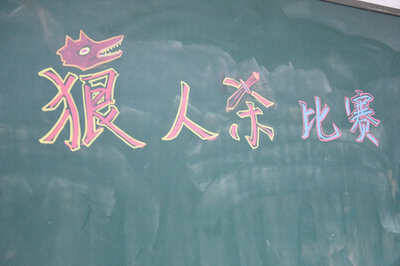 狼人杀比赛